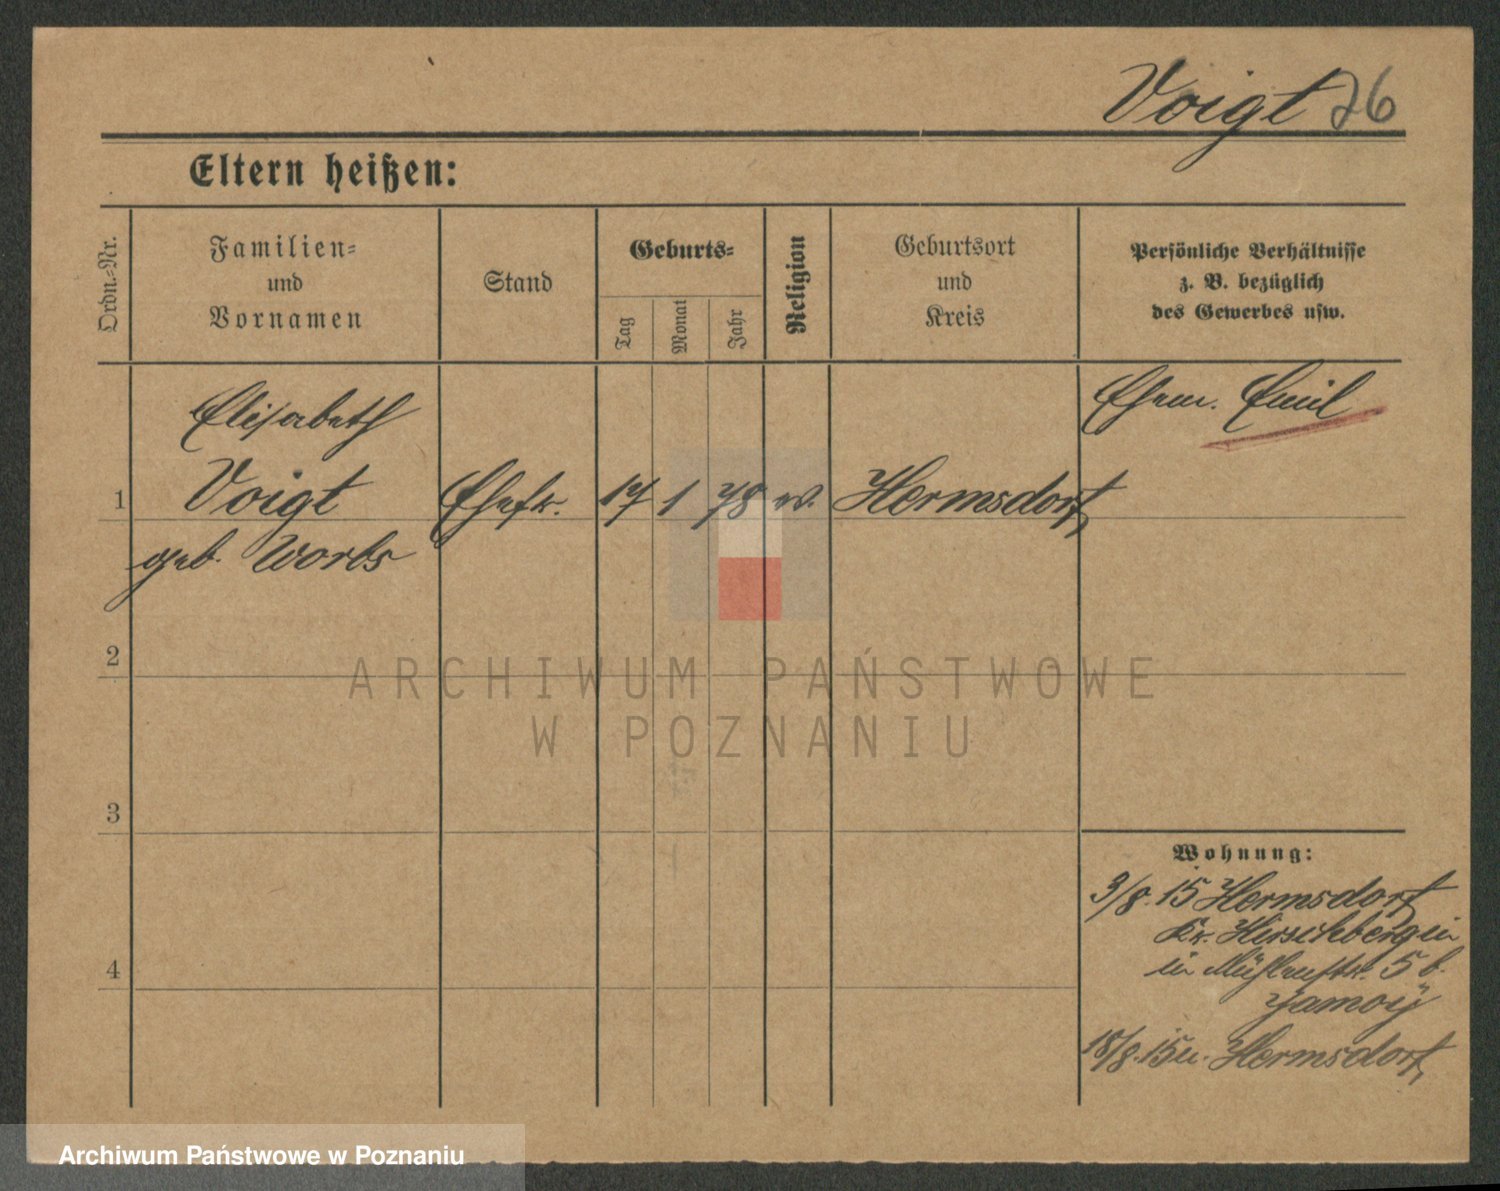 Voigt 76
Eltern heißen:
Ordn.=Nr.
Familien=
und
Vornamen
Stand
Geburts=
Tag
Monat
Jahr
Religion
Geburtsort
und
Kreis
Persönliche Verhältnisse
z. B. bezüglich
des Gewerbes usw.
Elisabeth
Ehem. Emil
1 Voigt Ehefr. 17 1 78 Hermsdorf
geb. Worbs
2
3
4
ARCHIWUM PAŃSTWOWE
W POZNANIU
Wohnung:
3/8. 15 Hermsdorf
Kr. Hirschberg
in 5 b.
18/8. 15 n. Hermsdorf
Archiwum Państwowe w Poznaniu